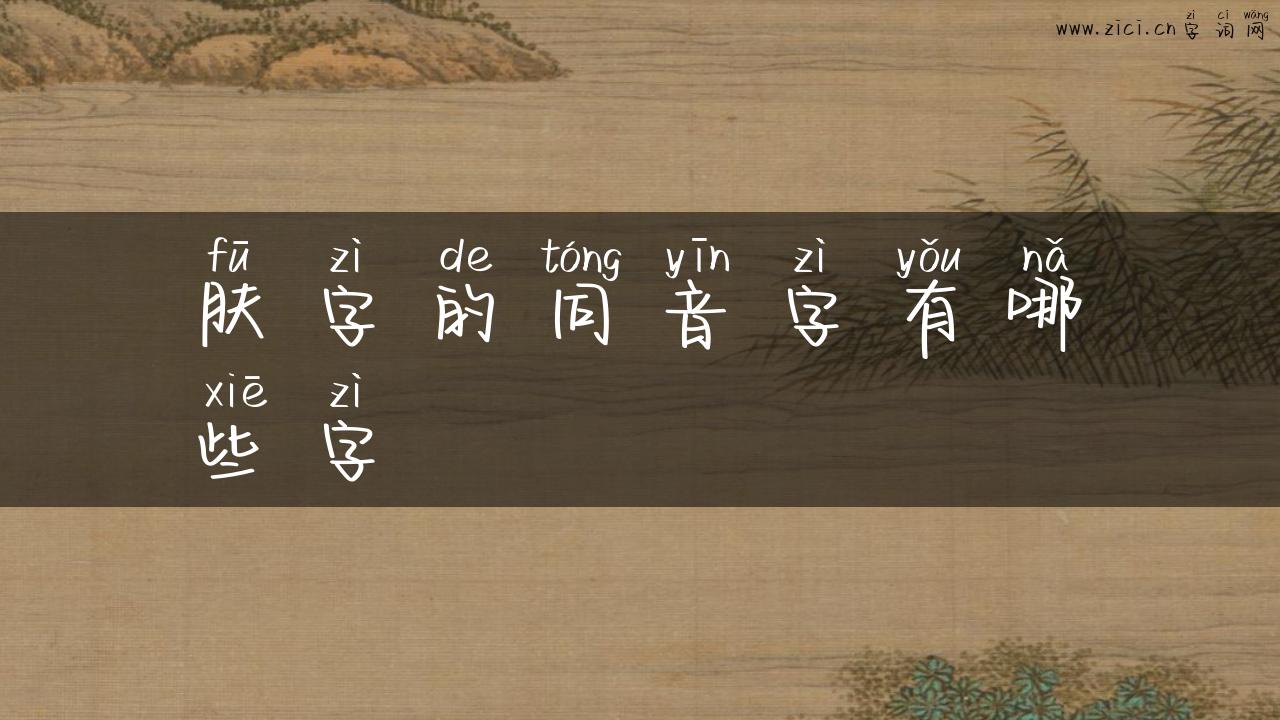 zì cí wǎng
www.zici.cn 字词网
fū zì de tóng yīn zì yǒu nǎ
肤字的同音字有哪
xiē zì
些字